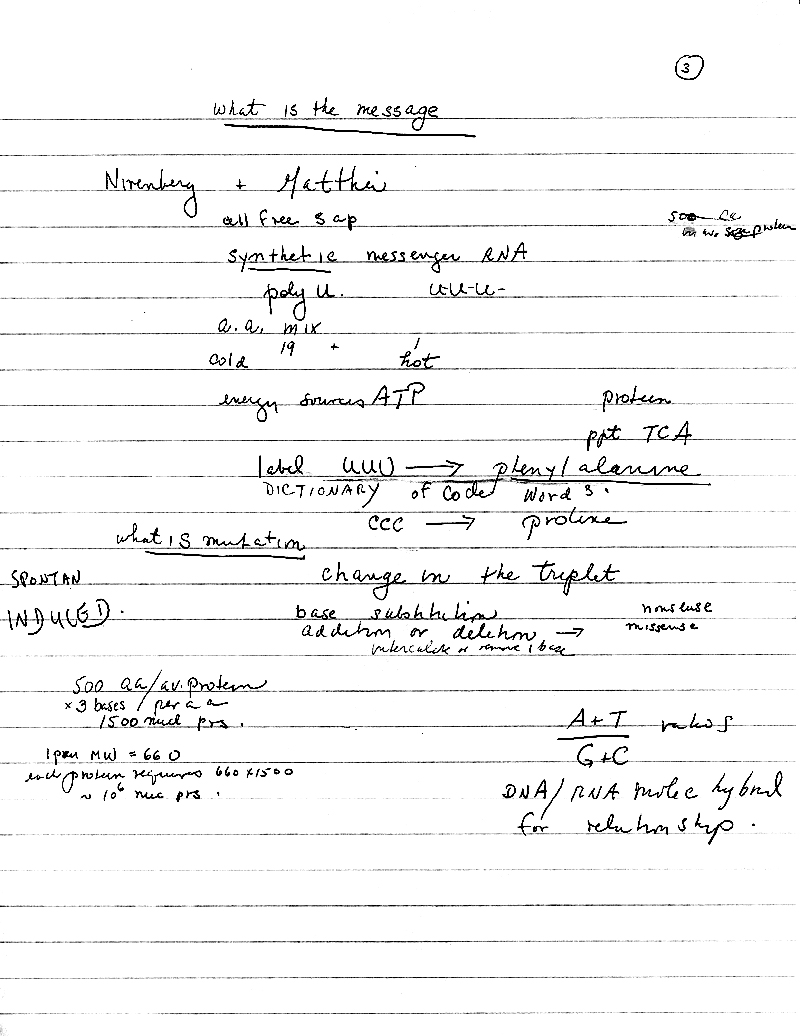 3
What is the message
Nirenberg + Matthei
cell free sap
500 aa
in av. protein
synthetic messenger RNA
poly U. U-U-U-
a.a. mix
cold 19 + 1 hot
energy sources ATP
protein
ppt TCA
label UUU → phenylalanine
DICTIONARY of Code Words.
CCC → proline
what is mutation
SPONTAN
change in the triplet
INDUCED.
base substitution
addition or deletion →
nonsense
missense
intercalate or remove 1 base
500 aa/av. protein
x 3 bases / per a a
1500 nucl prs.
1 pair MW = 660
each protein requires 660 x 1500
~ 10⁶ nuc prs.
A+T ratios
G+C
DNA/RNA molec hybrid
for relationship.